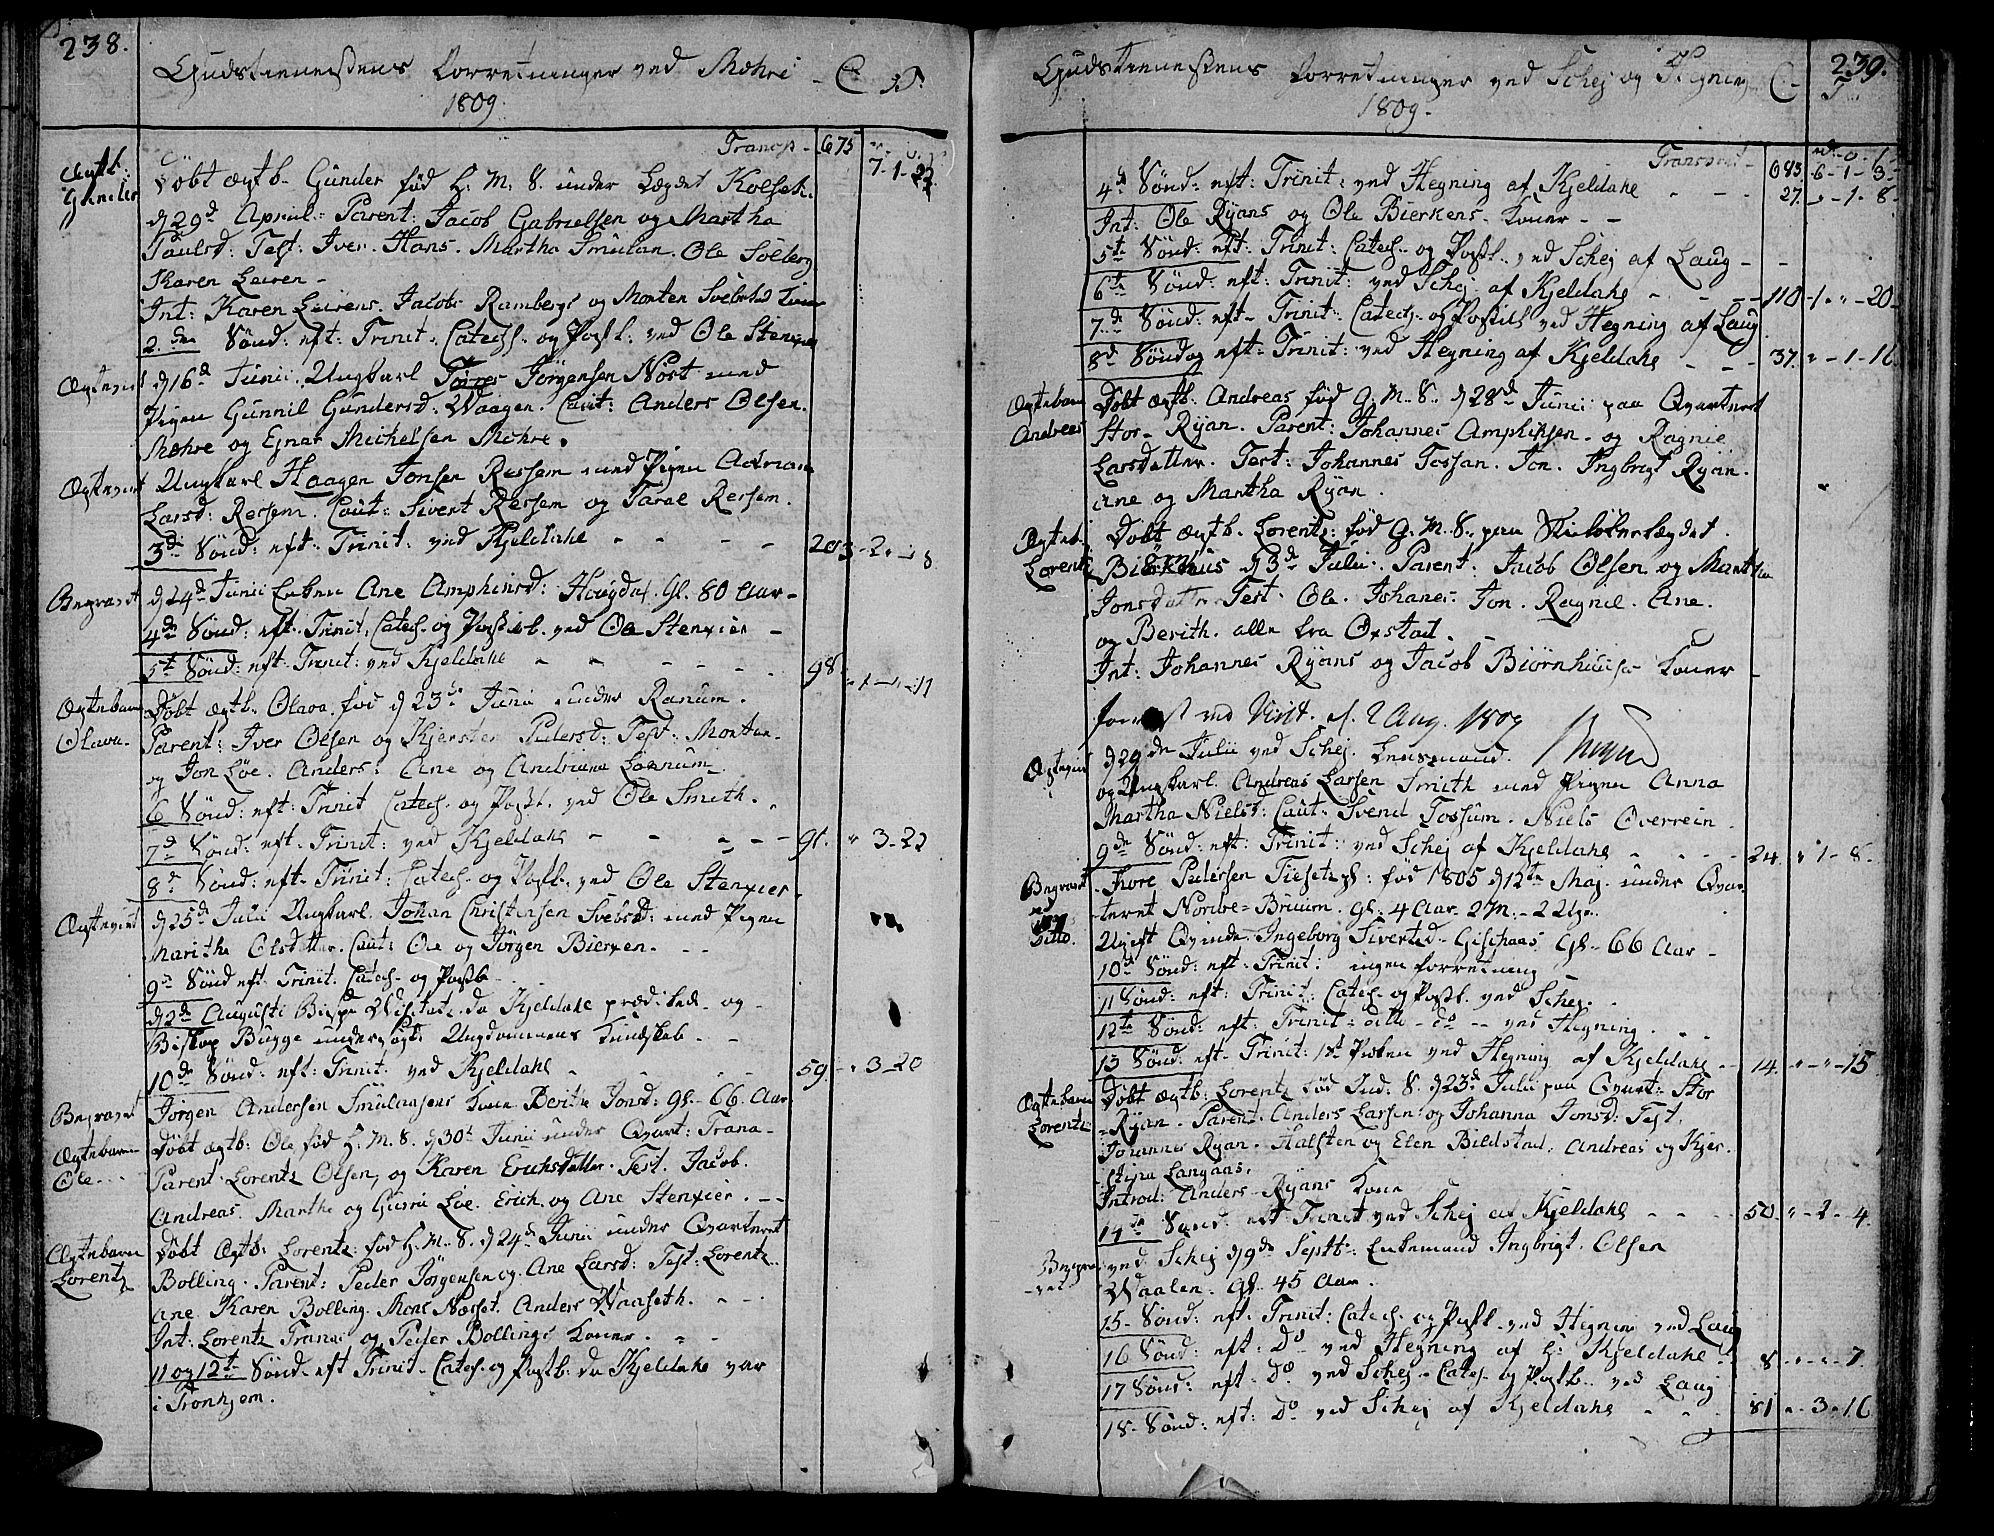 238.
Gudstienestens Forretninger ved Mæhre
1809.
C
T.
Transp - 675 7-1-22
Ægteb:
Gunder
Døbt ægtb. Gunder fød H. M. S. under Legdet Kolset.
d 29d April. Parent: Jacob Gabrielsen og Martha
Paulsd: Test: Iver. Hans. Martha Smulan. Ole Solberg
Karen Leiren -
Int: Karen Leirens, Jacobs Rambergs og Morten Svebstad Koner
2.den Sønd: eft: Trinit. Catech. og Postl. ved Ole Stenxier
Ægteviet
d 16d Junii. Ungkarl Torres Jørgensen Nøst med
Pigen Gunnil Gundersd: Waagen. Caut: Anders Olsen
Mæhre og Ejnar Michelsen Mæhre.
Ægteviet
Ungkarl Haagen Jonsen Ressem med Pigen Adriana
Larsd: Ressem. Caut: Sivert Ressem og Tarae Ressem.
3d Sønd: eft: Trinit: ved Kjeldahl - - - - 203-2-"-8
Begravet
d 24d Junii Enken Ane Amphinsd: Hougdal. Gl. 80 Aar -
4de Sønd: eft. Trinit, Catech. og Postl. ved Ole Stenxier -
5t Sønd: eft: Trinit: ved Kjeldahl - - - - 98 - 1 - 11
Ægtebarn
Olava.
Døbt ægtb. Olava. fød d 23d Junii under Ranum.
Parent: Iver Olsen og Kjersten Pedersd: Test: Morten
og Jon Løe. Anders: Ane og Andriana Lornum.
6 Sønd: eft: Trinit Catech. og Postl. ved Ole Smith.
7d Sønd: eft: Trinit: ved Kjeldahl - - - - 91. " 3-22
8d Sønd: eft. Trinit: Catech. og Postb. ved Ole Stenxier
Ægteviet
d 25d Julii Ungkarl. Johan Christensen Svebst: med Pigen
Marithe Olsdatter. Caut: Ole og Jørgen Bierxen. - -
9d Sønd eft. Trinit: Catech. og Postb -
d 2d Augusti Bispe Visitatz. da Kjeldahl prædikede - og -
Biskop Bugge undersøgte Ungdommens Kundskab. - -
10de Sønd: eft: Trinit: ved Kjeldahl - - - 59. - " 3-20
Begravet
Jørgen Andersen Smulansens Kone Berithe Jonsd: gl. 66. Aar
Ægtebarn
Ole. . .
Døbt ægtb: Ole fød H. M. S. d 30t Junii under Qvart: Trana-
Parent: Lorentz Olsen, og Karen Erichsdatter. Test. Jacob.
Andreas. Marthe og Gurri Løe. Erich. og Ane Stenxier. - -
Ægtebarn
Lorentz
Døbt Ægtb: Lorentz: fød H. M. S. d 24d Junii under Qvarteret
Bolling. Parent: Peder Jørgensen og. Ane Larsd: Test: Lorentz.
Ane. Karen Bolling. Mons Næsset. Anders Waaseth. - - -
Int: Lorentz Tranæs og Peder Bollings Koner. - -
11 og 12te Sønd. eft Trinit. Catech. og Postb: da Kjeldahl var
i Tronhjem.
239.
Gudstienestens Forretninger ved Schej og Hegning
1809.
C -
T
Transport - 683 6-1-3
4d Sønd: eft: Trinit: ved Hegning af Kjeldahl - - - 27. " -1-8
Int: Ole Ryans og Ole Bierkens. Koner - -
5te Sønd: eft: Trinit: Catech. og Postl. ved Schej af Laug - -
6te Sønd: eft: Trinit: ved Schej af Kjeldahl - - - - 110 -1 " -20
7d Sønd: eft. Trinit: Catech. og Postil ved Hegning af Laug
8d Søndag eft: Trinit: ved Hegning af Kjeldahl - - - 37. " -1-16
Ægtebarn
Andreas
Døbt Ægtb: Andreas fød G. M. S. d 28d Junii paa Qvarteret
Stor- Ryan. Parent: Johannes Amphinsen. og Ragnie
Larsdatter. Test: Johannes Fossan. Jon. Ingbrigt Ryan.
Ane og Martha Ryan.
Ægteb.
Lorentz
Døbt ægtb. Lorentz: fød G. M. S. paa Skieløberlegdet.
Biørnhuus d 3d Julii. Parent: Jacob Olsen og Martha
Jonsdatter Test: Ole. Johanes. Jon. Ragnil. Ane.
og Berith. alle fra Oxstad. -
Int: Johannes Ryans og Jacob Biørnhuus Koner
forevist ved Visit. d. 2 Aug. 1809 Bugge
Ægteviet
d 29de Julii ved Schej. Lensmand.
og Ungkarl. Andreas Larsen Smith med Pigen Anna
Martha Nielsd: Caut: Svend Fossum. Niels Overrein.
9de Sønd: eft: Trinit: ved Schej af Kjeldahl - - - - 24. " 1-8.
Begravet
Tore Pedersen Tiesetz pl: fød 1805 d 12te Maj. under Qvar-
teret Nordre-Bruum. gl: 4 Aar 2 M. - 2 Uger.
Ditto.
Ugift Qvinde- Ingeborg Sivertsd- Gilstaas Gl. 66 Aar -
10d Sønd: eft: Trinit: ingen forretning
11 Sønd: eft: Trinit: Catech. og Postl. ved Schej. -
12te Sønd: eft: Trinit: ditto - do -- ved Hegning. - -
13 Sønd: eft. Trinit: 1st Prøken ved Hegning af Kjeldahl -- 14. "-"-15
Ægtebarn
Lorentz
Døbt ægtb: Lorentz fød Ind. S. d 23d Julii paa Qvart: Stor
-Ryan. Parent. Anders Larsen og Johanna Jonsd: Test,
Johannes Ryan. Halsten og Elen Bildstad. Andreas og Kjer-
stina Langaas.
Introd: Anders Ryans Kone
14de Sønd: eft: Trinit ved Schej af Kjeldahl - - - 50. "-2-4.
Begra-
-vet
ved Schej d 9de Septb: Enkemand Ingbrigt. Olsen
Waalen. gl. 45 Aar.
15- Sønd: eft: Trinit: Catech. og Postl. ved Hegning ved Laug
16 Sønd: eft: Do. ved Hegning af H: Kjeldahl - - 8 "-"-7.
17 Sønd: eft. Do. ved Schej. Catech. og Postb. ved Laug
18. Sønd: eft: Do. ved Schej af Kjeldahl - - - 81 " -3-16